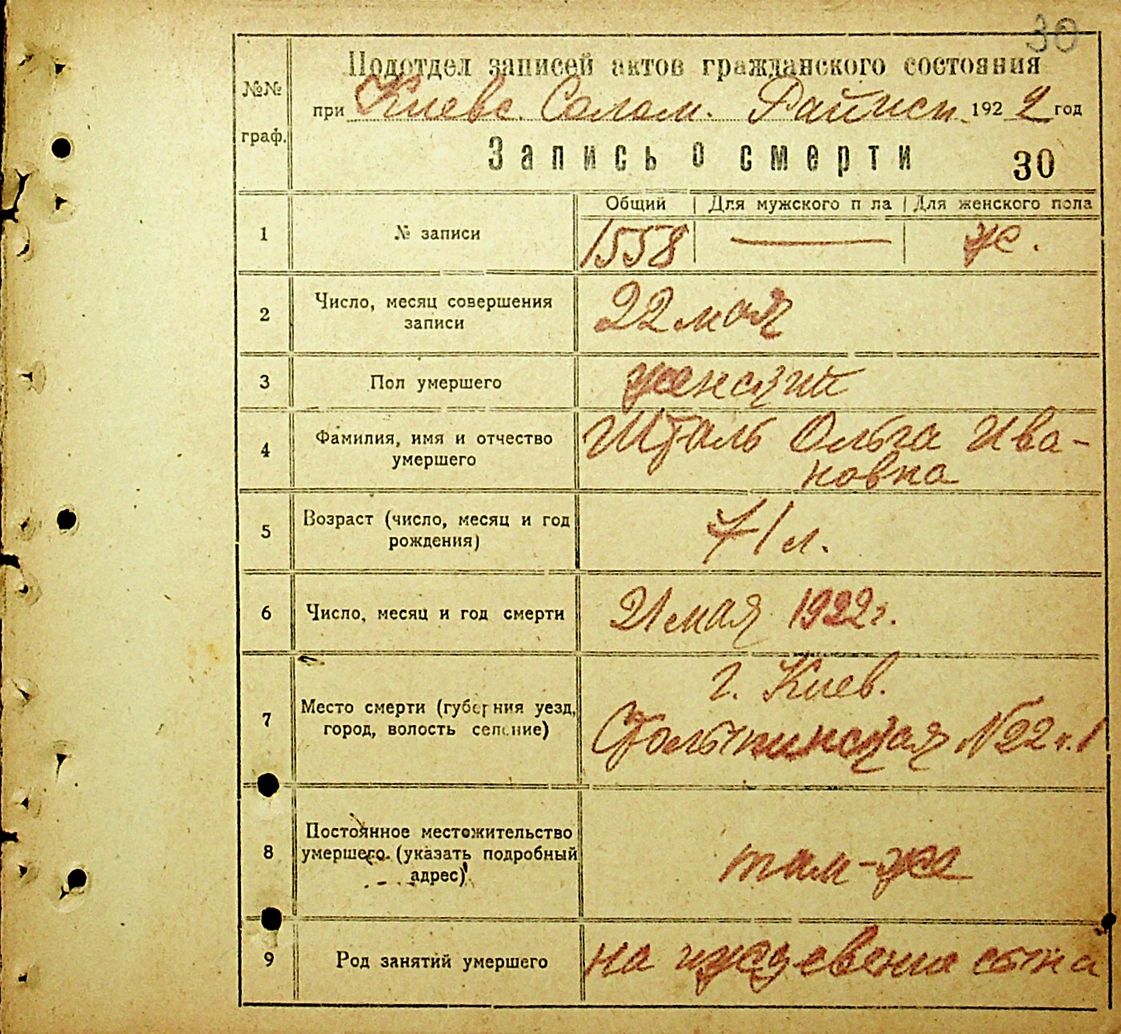 30
№№ граф.
Подотдел записей актов гражданского состояния
при Киевс. Солом. Райисп. 1922 год
Запись о смерти 30
Общий | Для мужского п ла | Для женского пола
1 № записи 1558 — ж.
2 Число, месяц совершения
записи
22 мая
3 Пол умершего женский
4 Фамилия, имя и отчество
умершего
Шталь Ольга Ива-
новна
5 Возраст (число, месяц и год
рождения)
71 л.
6 Число, месяц и год смерти 21 мая 1922 г.
7 Место смерти (губерния уезд,
город, волость селение)
г. Киев.
Столыпинская №22 к. 1
8 Постоянное местожительство
умершего (указать подробный
адрес)
там-же
9 Род занятий умершего на иждевение сына